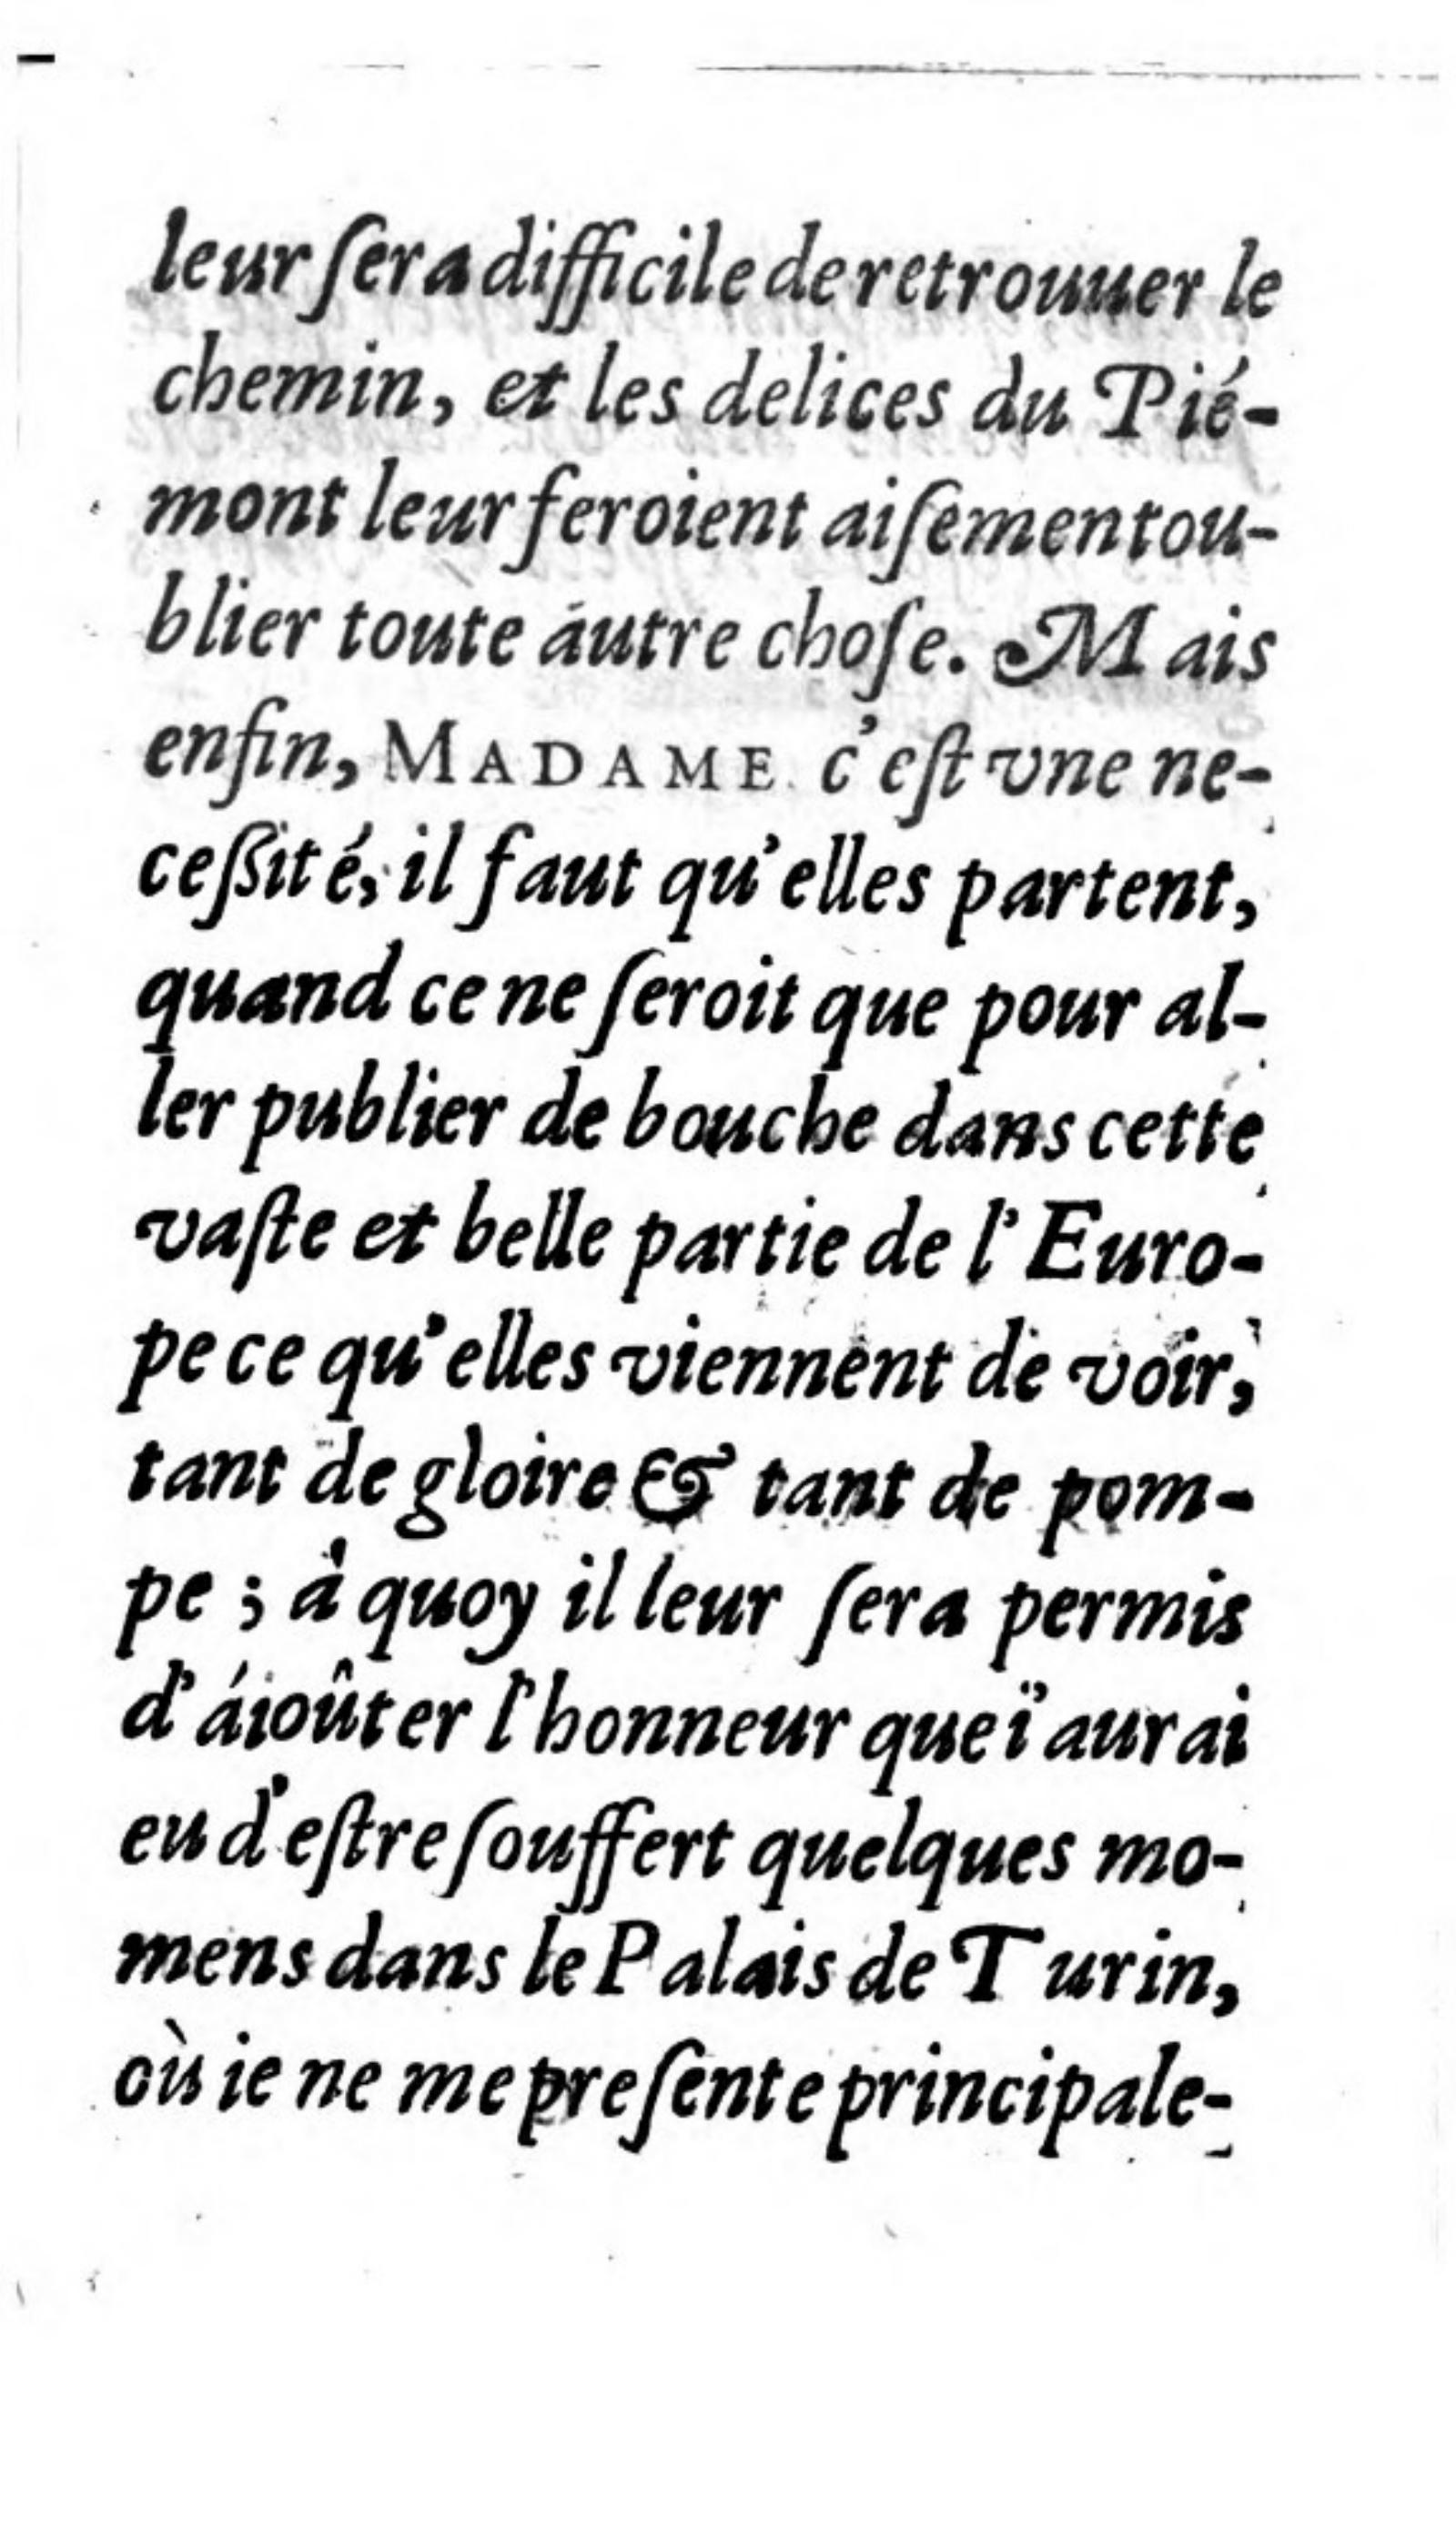 leur ſera difficile de retrouuer le
chemin, et les delices du Pié-
mont leur feroient aiſement ou-
blier toute autre choſe. Mais
enfin, MADAME c'eſt vne ne-
ceſſité, il faut qu'elles partent,
quand ce ne ſeroit que pour al-
ler publier de bouche dans cette
vaſte et belle partie de l'Euro-
pe ce qu'elles viennent de voir,
tant de gloire & tant de pom-
pe ; à quoy il leur ſera permis
d'áioûter l'honneur que i'aurai
eu d'eſtre ſouffert quelques mo-
mens dans le Palais de Turin,
où ie ne me preſente principale-